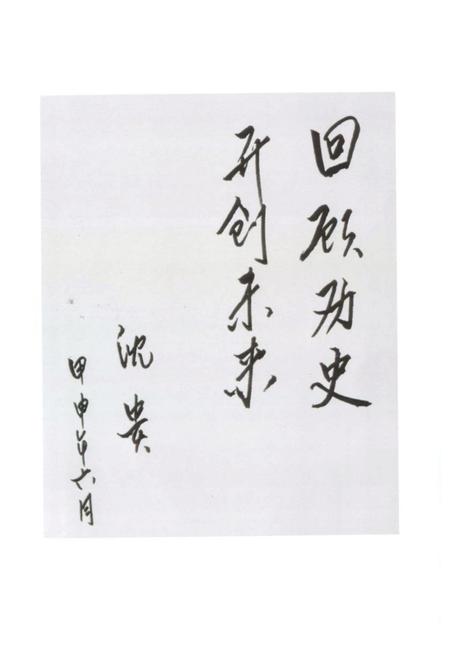 回顾历史
开创未来
沈贵
甲申年六月